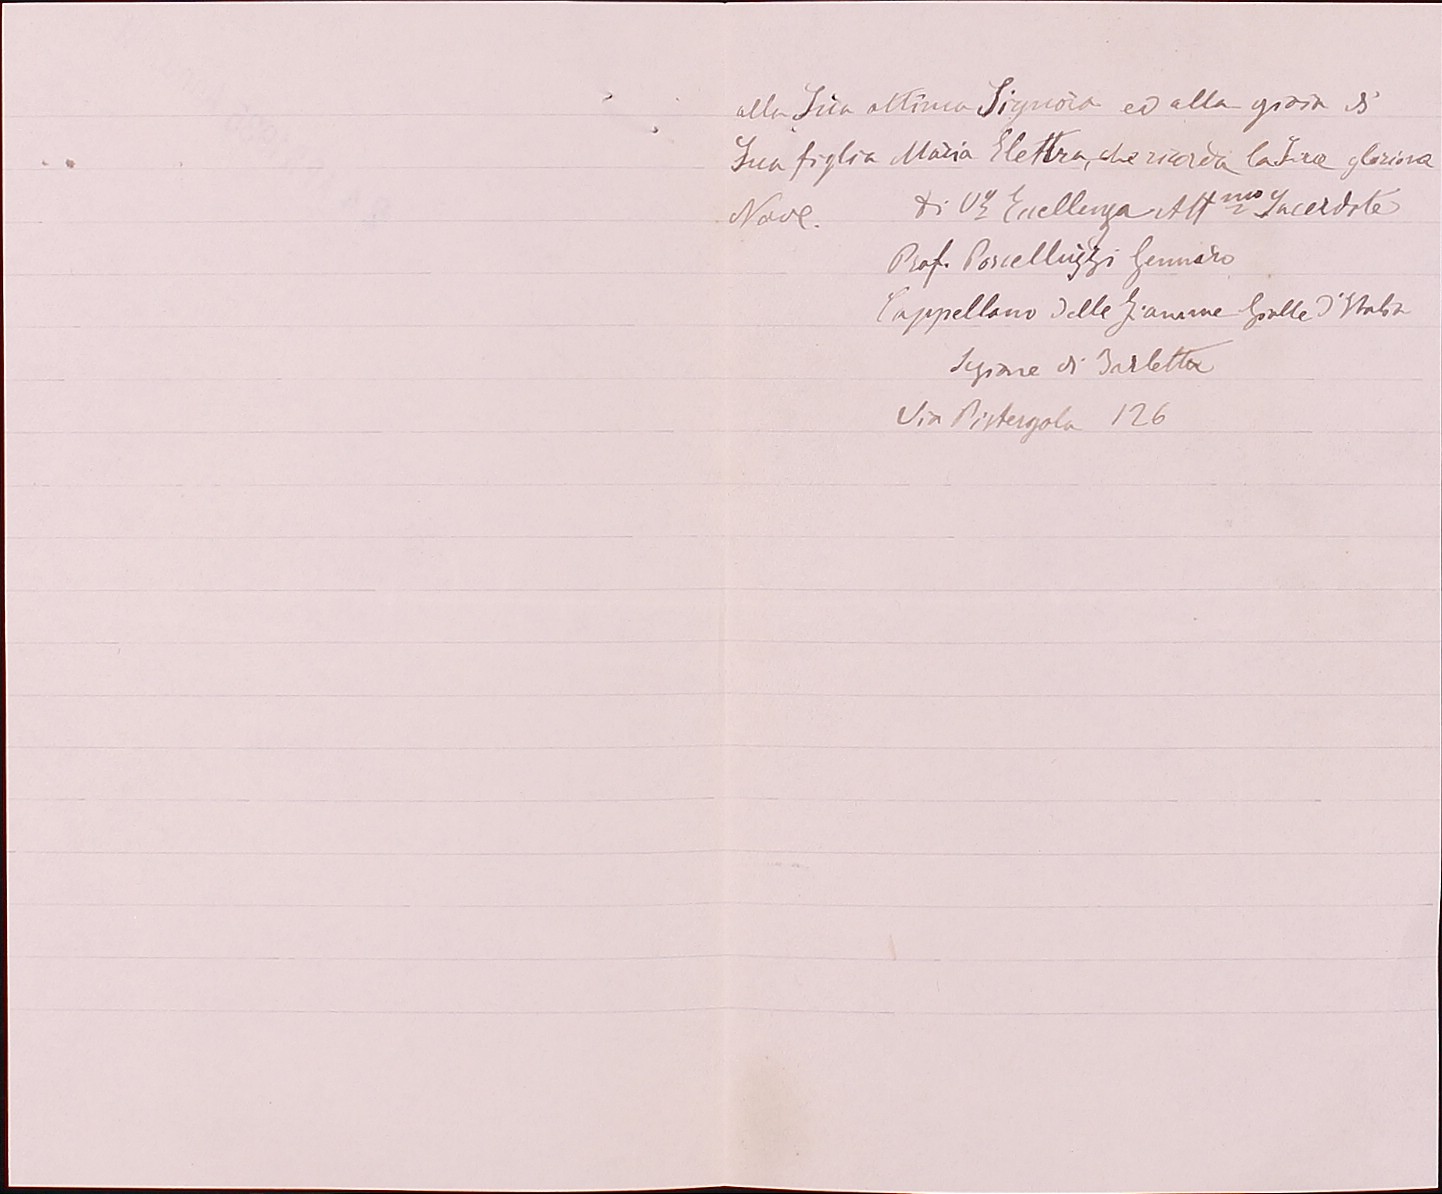 alla Sua ottima Signora ed alla gioia di
Sua figlia Maria Elettra, che ricorda la Sua gloriosa
Nave. Di V.ª Eccellenza Aff.mo Sacerdote
Prof. Porcelluzzi Gennaro
Cappellano delle Fiamme Gialle d'Italia
Sezione di Barletta
Via Pistergola 126